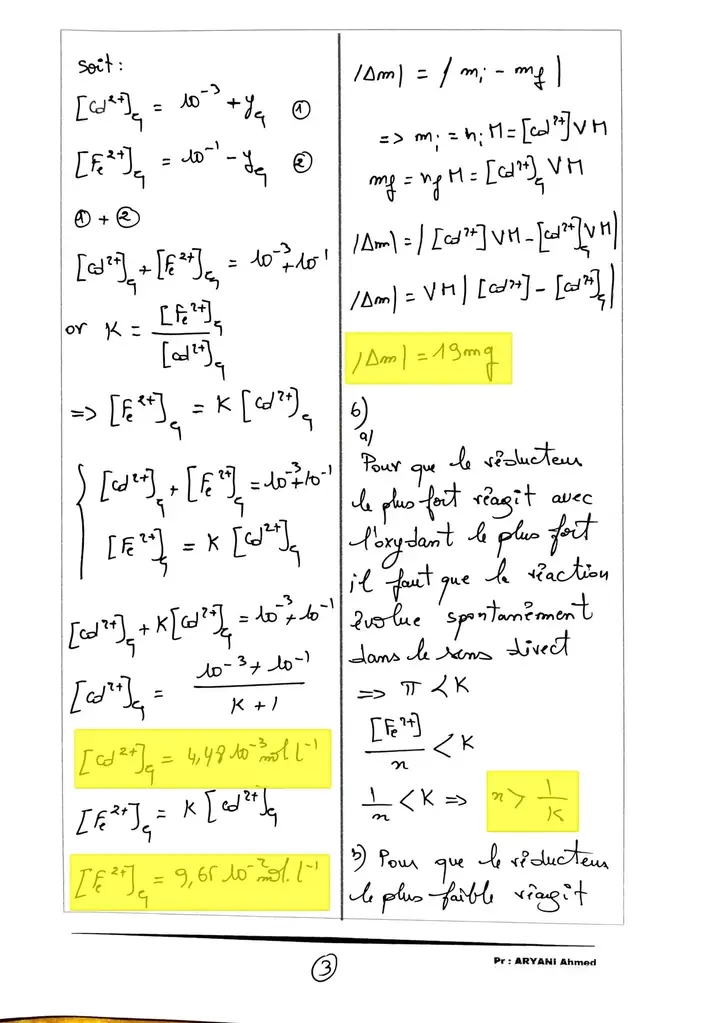 Soit :
[Cd²⁺]éq = 10⁻³ + yéq ①
[Fe²⁺]éq = 10⁻¹ - yéq ②
① + ②
[Cd²⁺]éq + [Fe²⁺]éq = 10⁻³ + 10⁻¹
or K = [Fe²⁺]éq / [Cd²⁺]éq
=> [Fe²⁺]éq = K [Cd²⁺]éq
{ [Cd²⁺]éq + [Fe²⁺]éq = 10⁻³ + 10⁻¹
[Fe²⁺]éq = K [Cd²⁺]éq
[Cd²⁺]éq + K[Cd²⁺]éq = 10⁻³ + 10⁻¹
[Cd²⁺]éq = (10⁻³ + 10⁻¹) / (K + 1)
[Cd²⁺]éq = 4,48 10⁻³ mol l⁻¹
[Fe²⁺]éq = K [Cd²⁺]éq
[Fe²⁺]éq = 9,65 10⁻² mol.l⁻¹
|Δm| = |mi - mf|
=> mi = ni M = [Cd²⁺]VM
mf = nf M = [Cd²⁺]éq VM
|Δm| = | [Cd²⁺]VM - [Cd²⁺]éq VM |
|Δm| = VM | [Cd²⁺] - [Cd²⁺]éq |
|Δm| = 19mg
6)
a)
Pour que le réducteur
le plus fort réagit avec
l'oxydant le plus fort
il faut que la réaction
évolue spontanément
dans le sens direct
=> π < K
[Fe²⁺] / n < K
1/n < K => n > 1/K
b) Pour que le réducteur
le plus faible réagit
Pr : ARYANI Ahmed
③